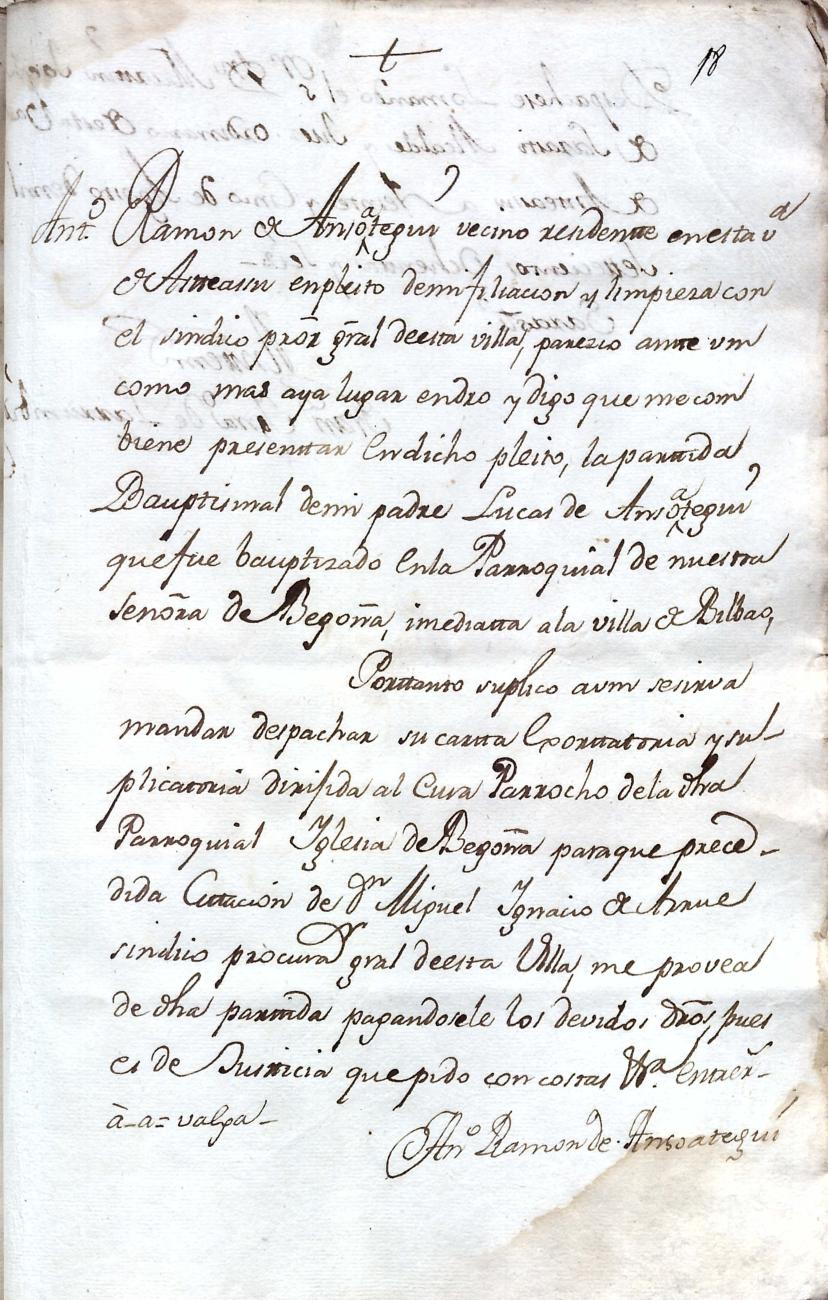 18
Antº Ramon de Ansoategui vecino residente en esta vª
de Asteasu en pleito de mi filiacion y limpieza con
el sindico pror gral de esta villa, parezco ante vm
como mas aya lugar en dro y digo que me com
biene presenttar en dicho pleito, la parttida
Bauptismal de mi padre Lucas de Ansoategui
que fue bauptizado en la Parroquial de nuestra
señora de Begoña, imediatta a la villa de Bilbao,
Porttanto suplico a vm se sirva
mandar despachar su cartta Exorttatoria y su-
plicatoria dirijida al Cura Parrocho de la dha
Parroquial Iglesia de Begoña para que prece-
dida Cittacion de Dn Miguel Ignacio de Arrue
sindico procurador gral de esta Villa, me provea
de dha parttida pagandosele los devidos dros, pues
es de Justicia que pido con costas &ª. Entrer-
a-a= valga-
Anº Ramon de Ansoategui